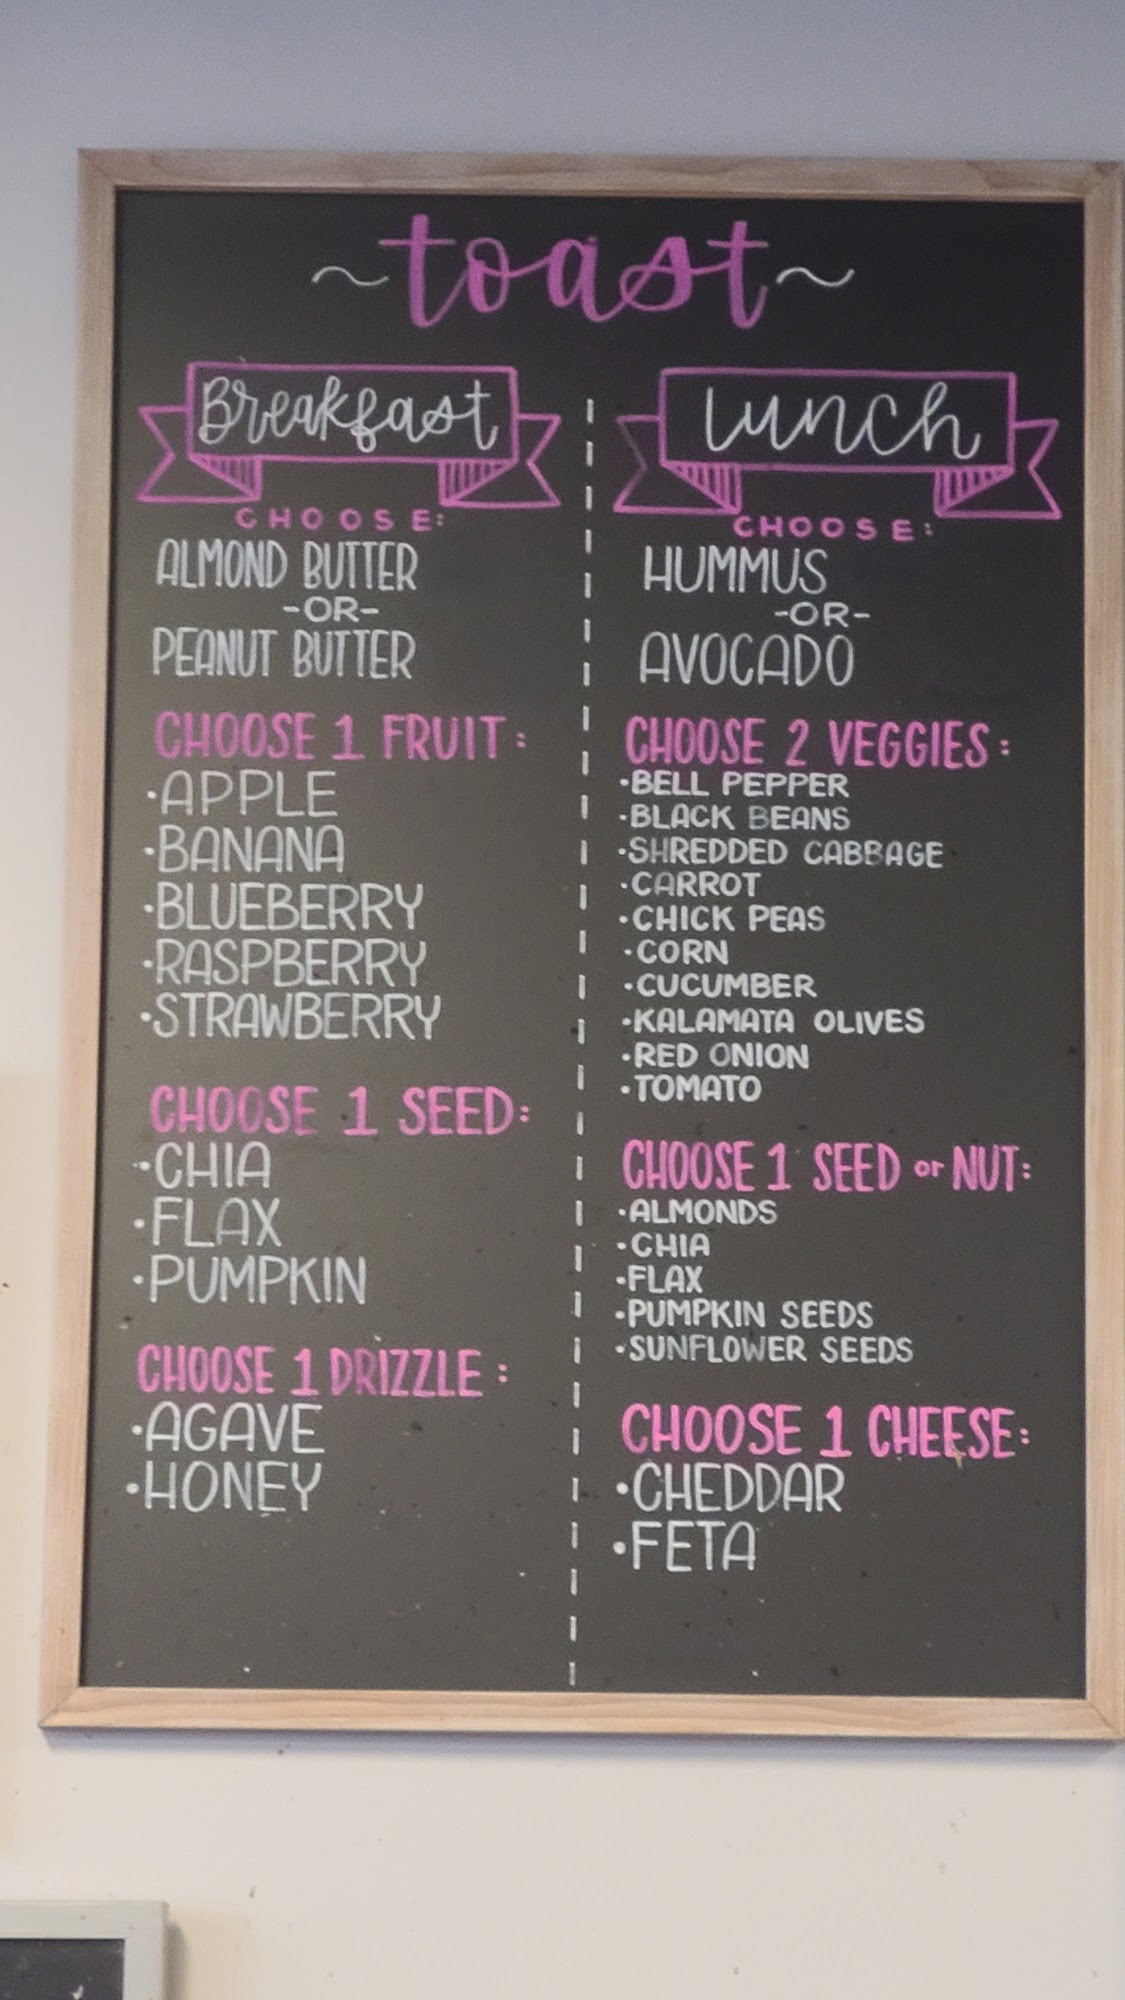 ~toast~
Breakfast
CHOOSE:
ALMOND BUTTER
-OR-
PEANUT BUTTER
CHOOSE 1 FRUIT:
·APPLE
·BANANA
·BLUEBERRY
·RASPBERRY
·STRAWBERRY
CHOOSE 1 SEED:
·CHIA
·FLAX
·PUMPKIN
CHOOSE 1 DRIZZLE:
·AGAVE
·HONEY
Lunch
CHOOSE:
HUMMUS
-OR-
AVOCADO
CHOOSE 2 VEGGIES:
·BELL PEPPER
·BLACK BEANS
·SHREDDED CABBAGE
·CARROT
·CHICK PEAS
·CORN
·CUCUMBER
·KALAMATA OLIVES
·RED ONION
·TOMATO
CHOOSE 1 SEED or NUT:
·ALMONDS
·CHIA
·FLAX
·PUMPKIN SEEDS
·SUNFLOWER SEEDS
CHOOSE 1 CHEESE:
·CHEDDAR
·FETA